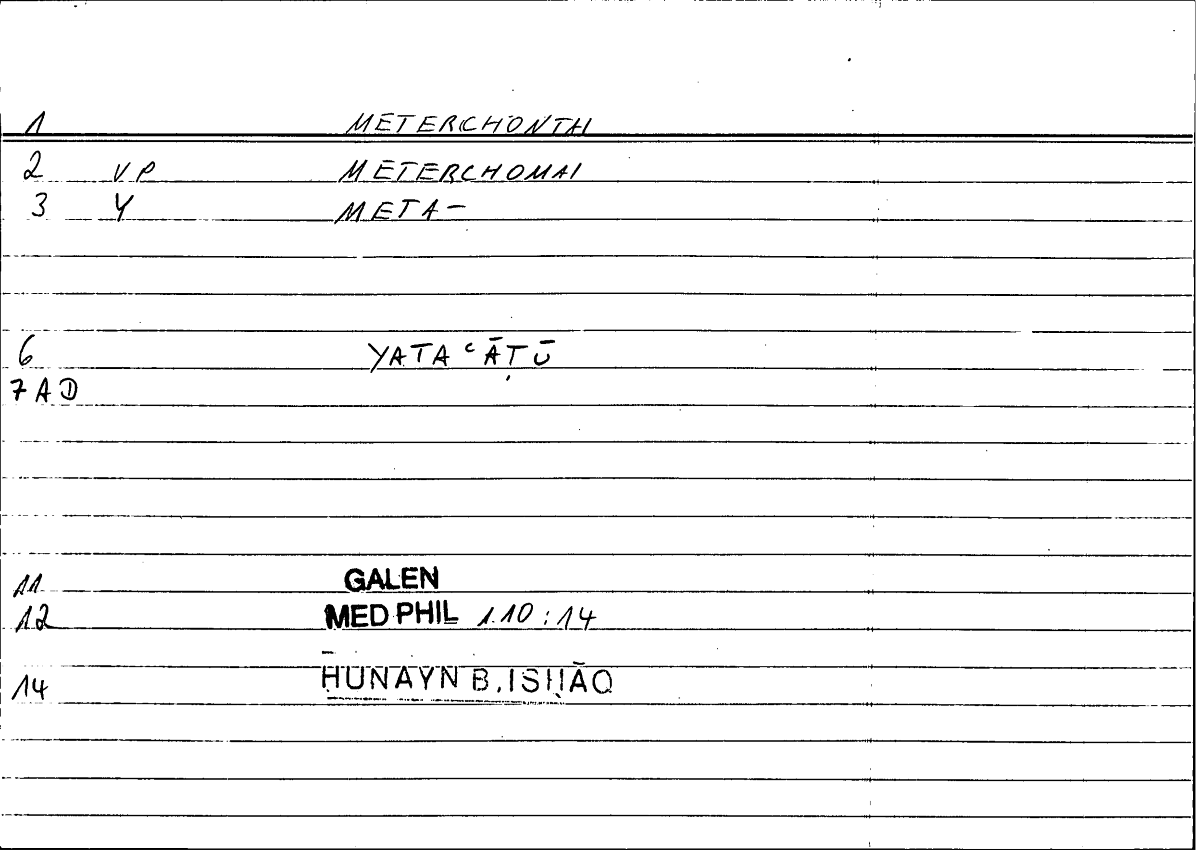 1 METERCHONTAI
2 VP METERCHOMAI
3 Y META-
6 YATAʿĀṬŪ
7 AD
11 GALEN
12 MED PHIL 1.10:14
14 ḤUNAYN B. ISḤĀQ